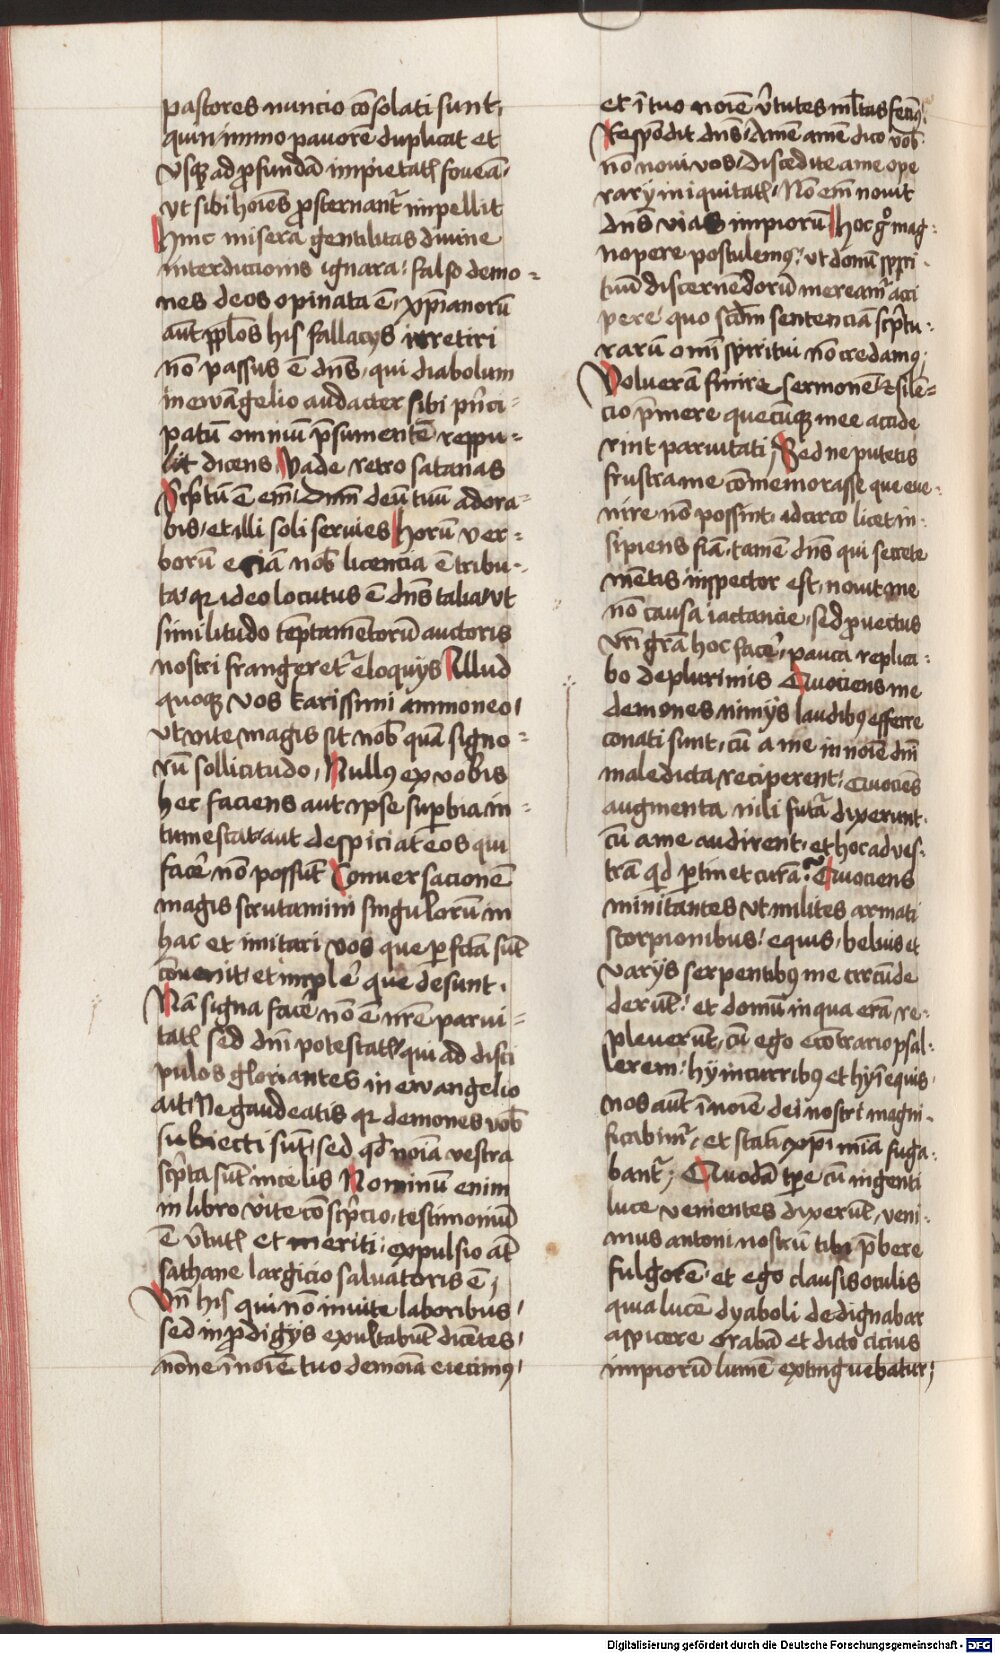 pastores nuncio cōsolati sunt,
quin immo pauorē duplicat et
vsqꝫ ad ꝓfundā impietatꝭ foueā,
vt sibi hoīes ꝓsternant᷑ impellit
Hinc misera gentilitas diuine
interdictionis ignara: falso demo-
nes deos opinata ē, xp̄ianorū
aūt ppl̄os his fallacijs irretiri
nō passus ē dn̄s, qui diabolum
in ewāgelio audacter sibi pn̄ci-
patū omniū p̄sumentē reppu-
lit dicens, Vade retro satanas
Scptū ē em̄, Dnm̄ deū tuū adora-
bis, et illi soli seruies Horū ver-
borū eciā nob̄ licencia ē tribu-
ta, qꝛ ideo locutus ē dn̄s talia, vt
similitudo tēptamētorū auctoris
nostri frangeret᷑ eloquijs Illud
quoqꝫ vos karissimi ammoneo,
vt vite magis sit nob̄ quā signo-
rū sollicitudo, Nullꝰ ex vobis
hec faciens aut ipse supb̄ia in-
tumescat, aut despiciat eos qui
facer̄ nō possūt Conuersacionē
magis scrutamini singulorū in
hac et imitari vos que ꝑfcta sūt
cōuenit, et impler̄ que desunt,
Nā signa facer̄ nō ē nr̄e parui-
tatꝭ sed dn̄i potestatꝭ, qui ad disci
pulos gloriantes in ewangelio
ait, Ne gaudeatis qꝛ demones vob̄
subiecti sūt, sed qd̄ noīa vestra
scp̄ta sūt in celis Nominū enim
in libro vite cōscp̄cio, testimoniū
ē v̄tutꝭ et meriti, expulsio at̄
sathane largicio saluatoris ē,
Vn̄ his qui nō in vite laboribus,
sed in ꝓdigijs exultabūt dicētes,
nōne ī noīe tuo demoīa eiecimꝰ,
et ī tuo noīe v̄tutes ml̄tas fecimꝰ,
Respōdit dn̄s, Amē amē dico vob̄
nō noui vos, discedite a me ope
rarij iniquitatꝭ, Nō em̄ nouit
dn̄s vias impiorū Hoc gͦ mag-
nopere postulemꝰ, vt donū spūi-
tuū discernēdorū mereamr̄ acci
pere, quo scdm̄ sentenciā scp̄tu-
rarū omī spiritui nō credamꝰ,
Volueram finire sermonē, et silē-
cio p̄mere quecūqꝫ mee accide
rint paruitati, Sed ne putetis
frustra me cōmemorasse que eue-
nire nō possint, idcirco licet in-
sipiens fiā, tamē dn̄s qui secrete
mētis inspector est, nouit me
nō causa iactancie, sed ꝓuectus
vr̄i grā hoc facer̄, pauca replica-
bo de plurimis Quociens me
demones nimijs laudibꝰ efferre
conati sunt, cū a me in noīe dn̄i
maledicta reciperent, Quociēs
augmenta nili futʳa dixerunt,
cū a me audirent, et hoc ad ves-
trā qd ꝑtinet curā, Quociens
minitantes vt milites armati
scorpionibus, equis, beluis et
varijs serpentibꝰ me circūde
derūt, et domū in qua erā re-
pleuerūt, cū ego econtrario psal-
lerem, hij in curribꝰ et hij ī equis,
nos aūt ī noīe dei nostri magni-
ficabimʳ, et statī xp̄i mīa fuga-
bant᷑, Quodā tp̄e cū ingenti
luce venientes dixerūt, veni-
mus antoni nostrū tibi p̄bere
fulgorē, et ego clausis oculis
quia lucē dyaboli dedignabar
aspicere orabā et dicto cicius
impiorū lumē extinguebatur,
Digitalisierung gefördert durch die Deutsche Forschungsgemeinschaft - DFG